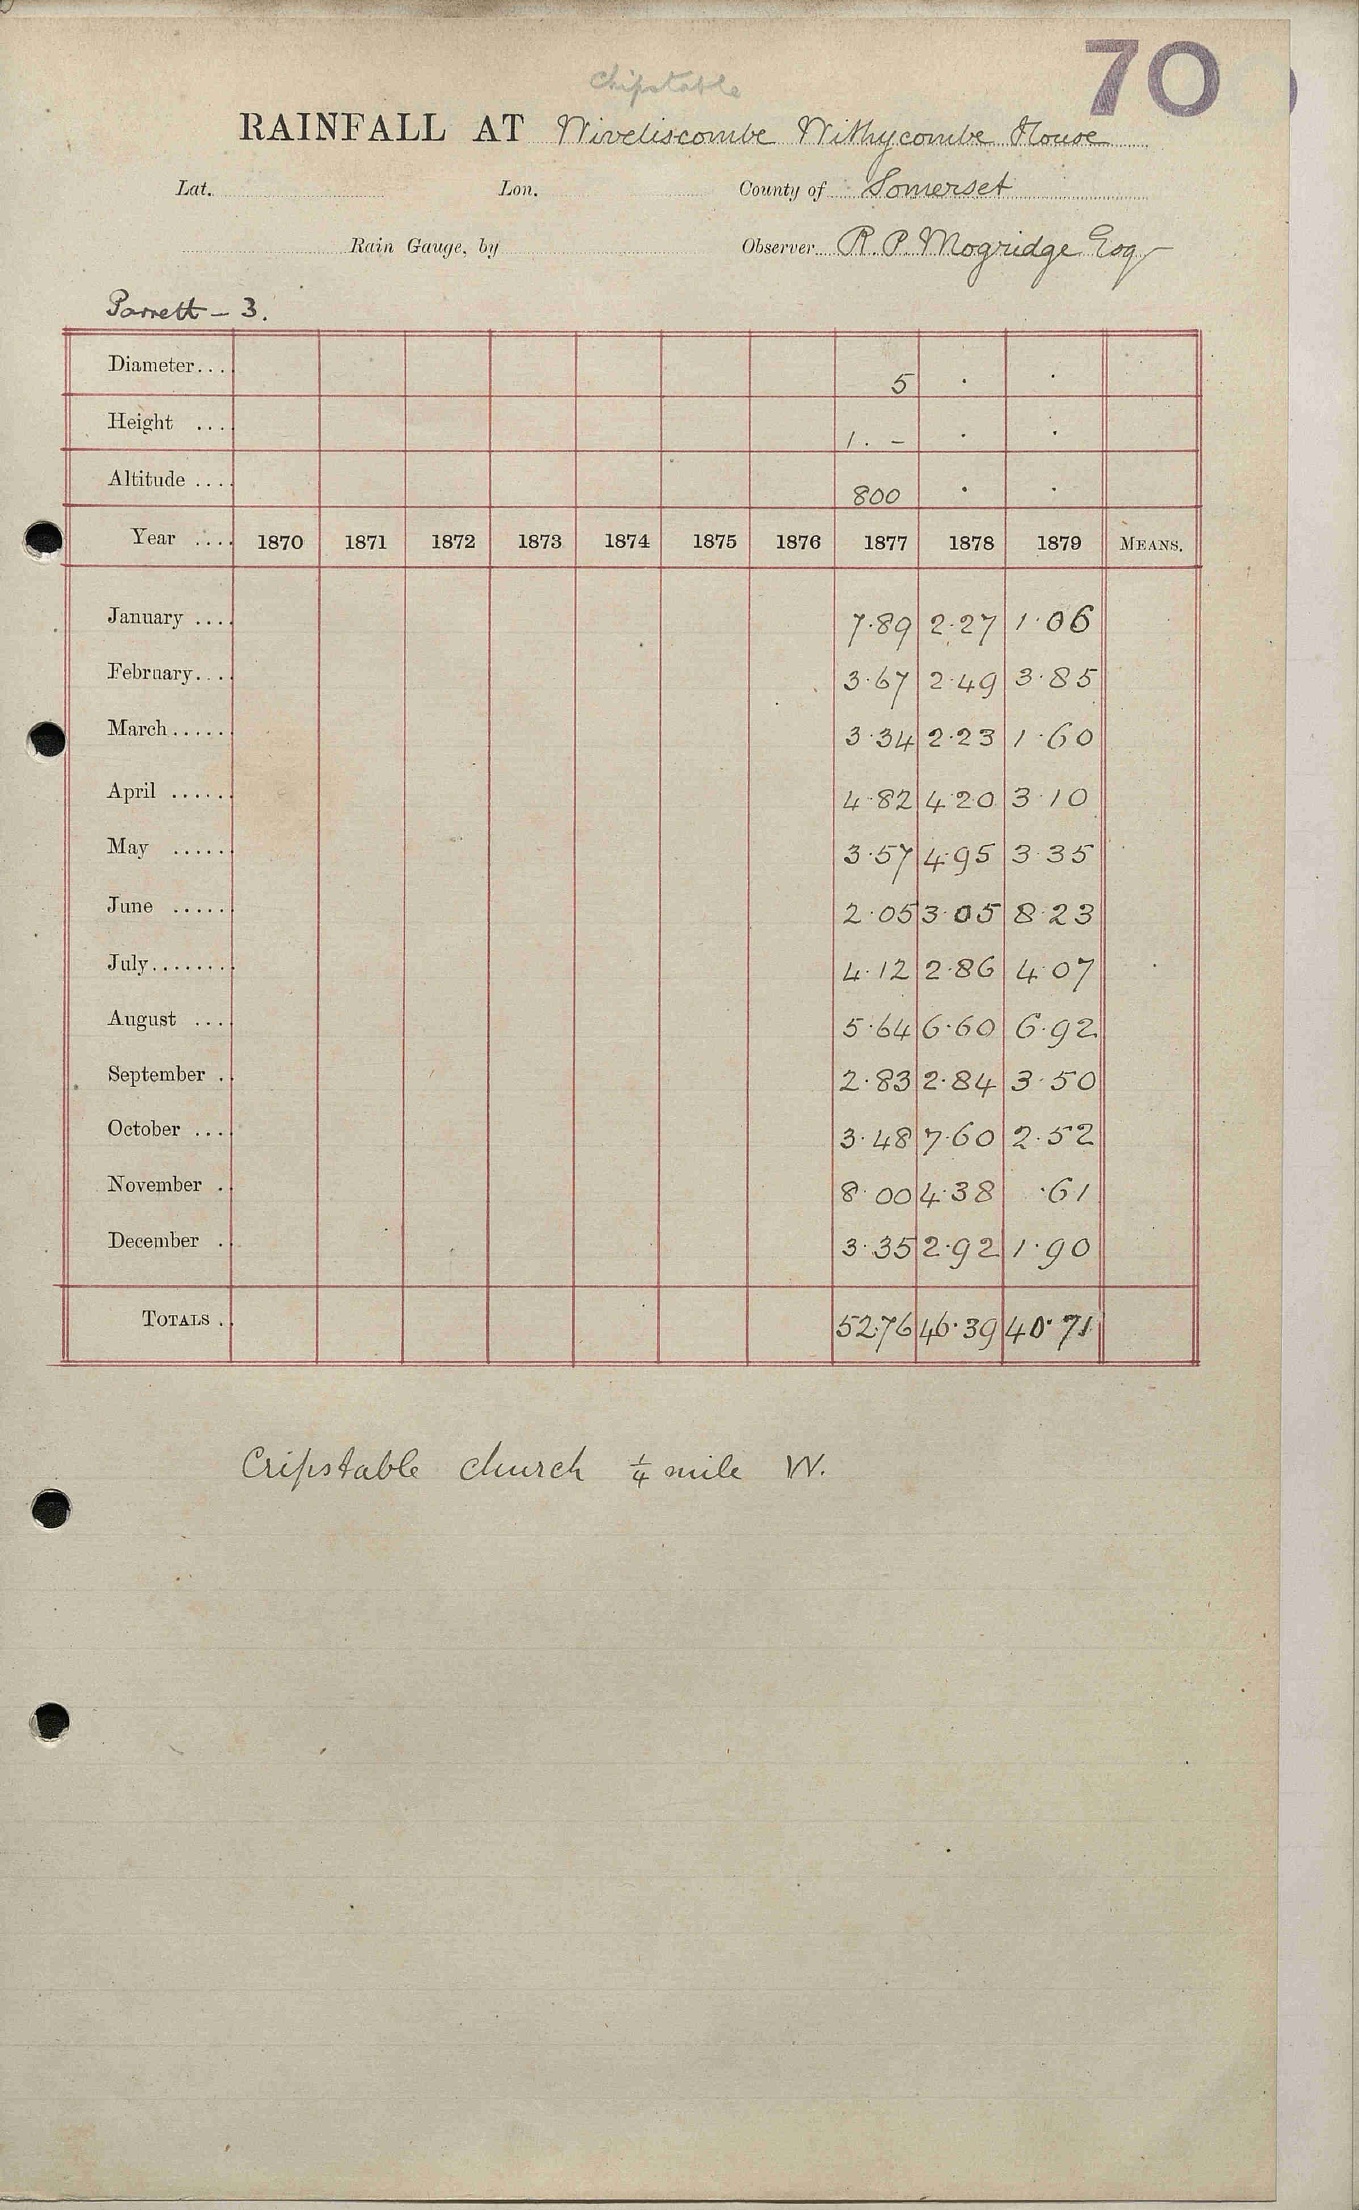 70
Chipstable
RAINFALL AT Wiveliscombe Withycombe House
Lat. Lon. County of Somerset
Rain Gauge, by Observer R. P. Mogridge Esq
Parrett - 3.
Diameter... 5 . .
Height ... 1. - . .
Altitude .... 800 . .
Year .... 1870 1871 1872 1873 1874 1875 1876 1877 1878 1879 MEANS.
January .... 7.89 2.27 1.06
February... 3.67 2.49 3.85
March..... 3.34 2.23 1.60
April ...... 4.82 4.20 3.10
May ..... 3.57 4.95 3.35
June ..... 2.05 3.05 8.23
July........ 4.12 2.86 4.07
August ... 5.64 6.60 6.92
September . 2.83 2.84 3.50
October ... 3.48 7.60 2.52
November . 8.00 4.38 .61
December . 3.35 2.92 1.90
TOTALS . 52.76 46.39 40.71
Cripstable church 1/4 mile W.